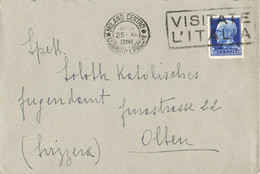 MILANO CENTRO
25-XI
VISITATE
L'ITALIA
Spett.
Soloth Katolisches
Jugendamt Jurastrasse 22
Olten
(Svizzera)